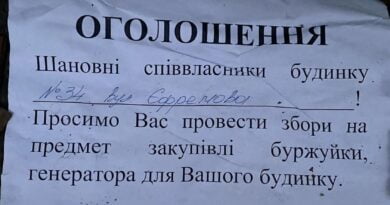 ОГОЛОШЕННЯ
Шановні співвласники будинку
№34 вул Єфремова . !
Просимо Вас провести збори на
предмет закупівлі буржуйки,
генератора для Вашого будинку.